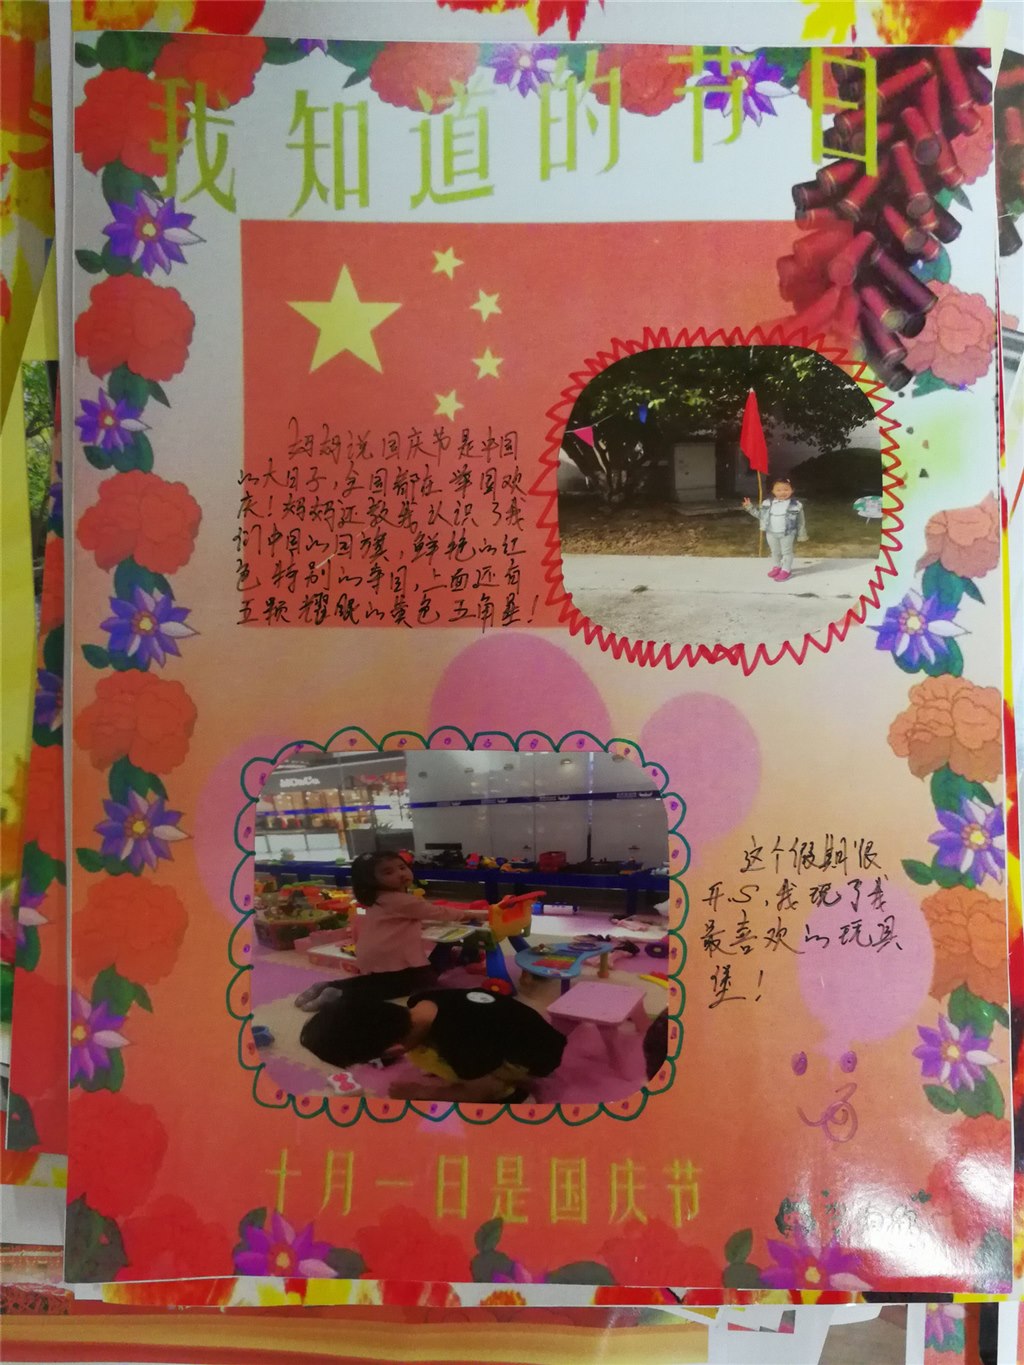 我知道的节日
妈妈说国庆节是中国
的大日子，全国都在举国欢
庆！妈妈还教我认识了我
们中国的国旗，鲜艳的红
色特别的幸国，上面还有
五颗耀眼的黄色五角星！
这个假期很
开心，我玩了我
最喜欢的玩具
堡！
十月一日是国庆节